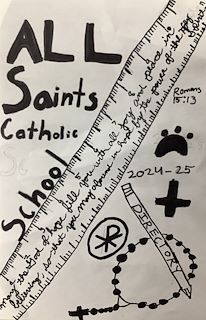 ALL
Saints
Catholic
School
May the God of hope fill you with all joy and peace in
believing, so that you may abound in hope by the power of the Holy
Romans
15:13
2024-25
DIRECTORY